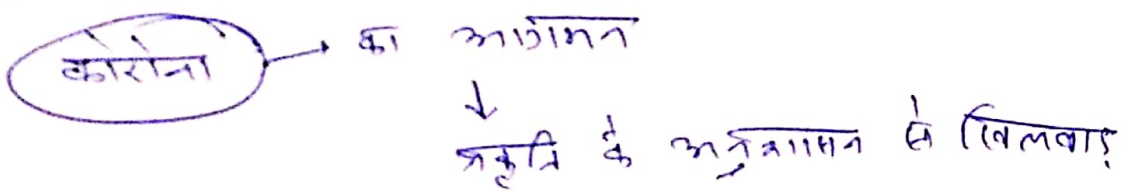 कोरोना → का आगमन
↓
प्रकृति के अनुशासन से खिलवाड़